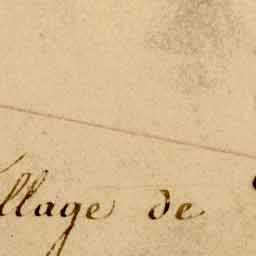 llage de